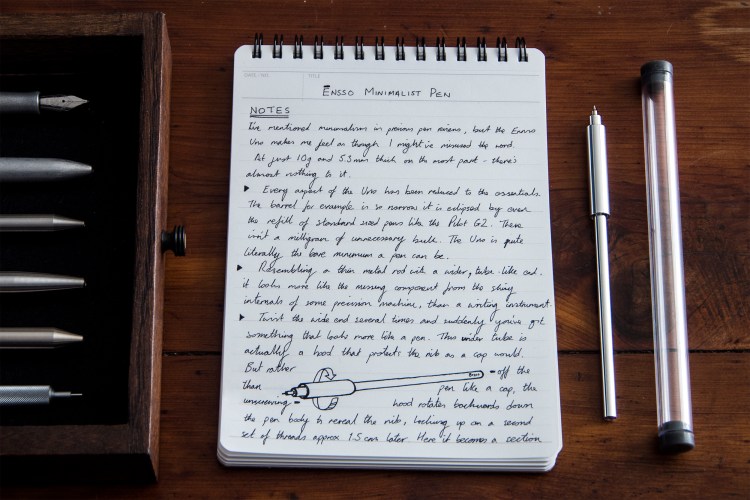 TITLE
Ensso Minimalist Pen
NOTES
I've mentioned minimalism in previous pen reviews, but the Ensso
Uno makes me feel as though I might've misused the word.
At just 10g and 5.5mm thick on the most part - there's
almost nothing to it.
▶ Every aspect of the Uno has been reduced to the essentials.
The barrel for example is so narrow it is eclipsed by even
the refill of standard sized pens like the Pilot G2. There
isn't a milligram of unnecessary bulk. The Uno is quite
literally the bare minimum a pen can be.
▶ Resembling a thin metal rod with a wider, tube-like end.
it looks more like the missing component from the shiny
internals of some precision machine, than a writing instrument.
▶ Twist the wide end several times and suddenly you've got
something that looks more like a pen. This wider tube is
actually a hood that protects the nib as a cap would.
But rather - off the
than pen like a cap, the
unscrewing - hood rotates backwards down
the pen body to reveal the nib, locking up on a second
set of threads approx 1.5cm later. Here it becomes a section